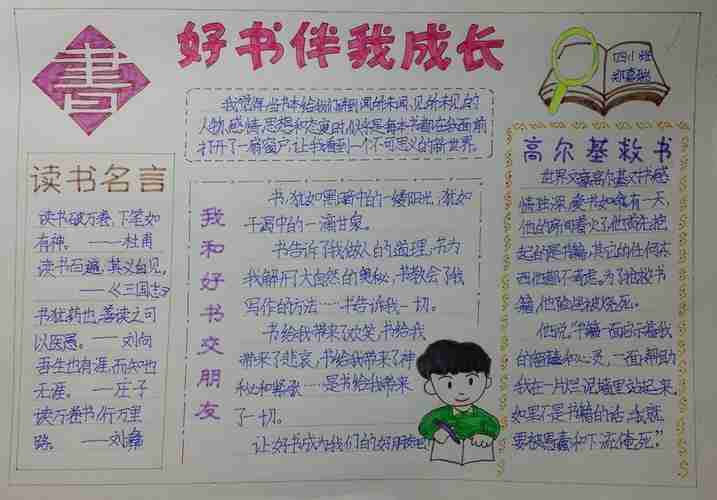 書
好书伴我成长
四(1)班
我觉得,当书本给我们讲到闻所未闻,见所未见的
人物、感情、思想和态度时,似乎是每本书都在我们面前
打开了一扇窗户,让我看到一个不可思议的新世界。
读书名言
读书破万卷,下笔如
有神。——杜甫
读书百遍,其义自见。
——《三国志》
书犹药也,善读之可
以医愚。——刘向
吾生也有涯,而知也
无涯。——庄子
读万卷书,行万里
路。——刘彝
我和好书交朋友
书,犹如黑暗中的一缕阳光,犹如
干渴中的一滴甘泉。
书告诉了我做人的道理,书为
我解开了大自然的奥秘,书教会了我
写作的方法……书告诉我一切。
书给我带来了欢笑,书给我
带来了悲哀,书给我带来了神
秘和紧张……是书给我带来
了一切。
让好书成为我们的好朋友吧
高尔基救书
世界文豪高尔基对书感
情独深,爱书如命。有一天,
他的房间着火了,他首先抱
起的是书籍,其它的任何东
西他都不考虑。为了抢救书
籍,他险些被烧死。
他说:书籍一面启示着我
的智慧和心灵,一面帮助
我在一片烂泥塘里站起来,
如果不是书籍的话,我就
要被愚蠢和下流淹死!